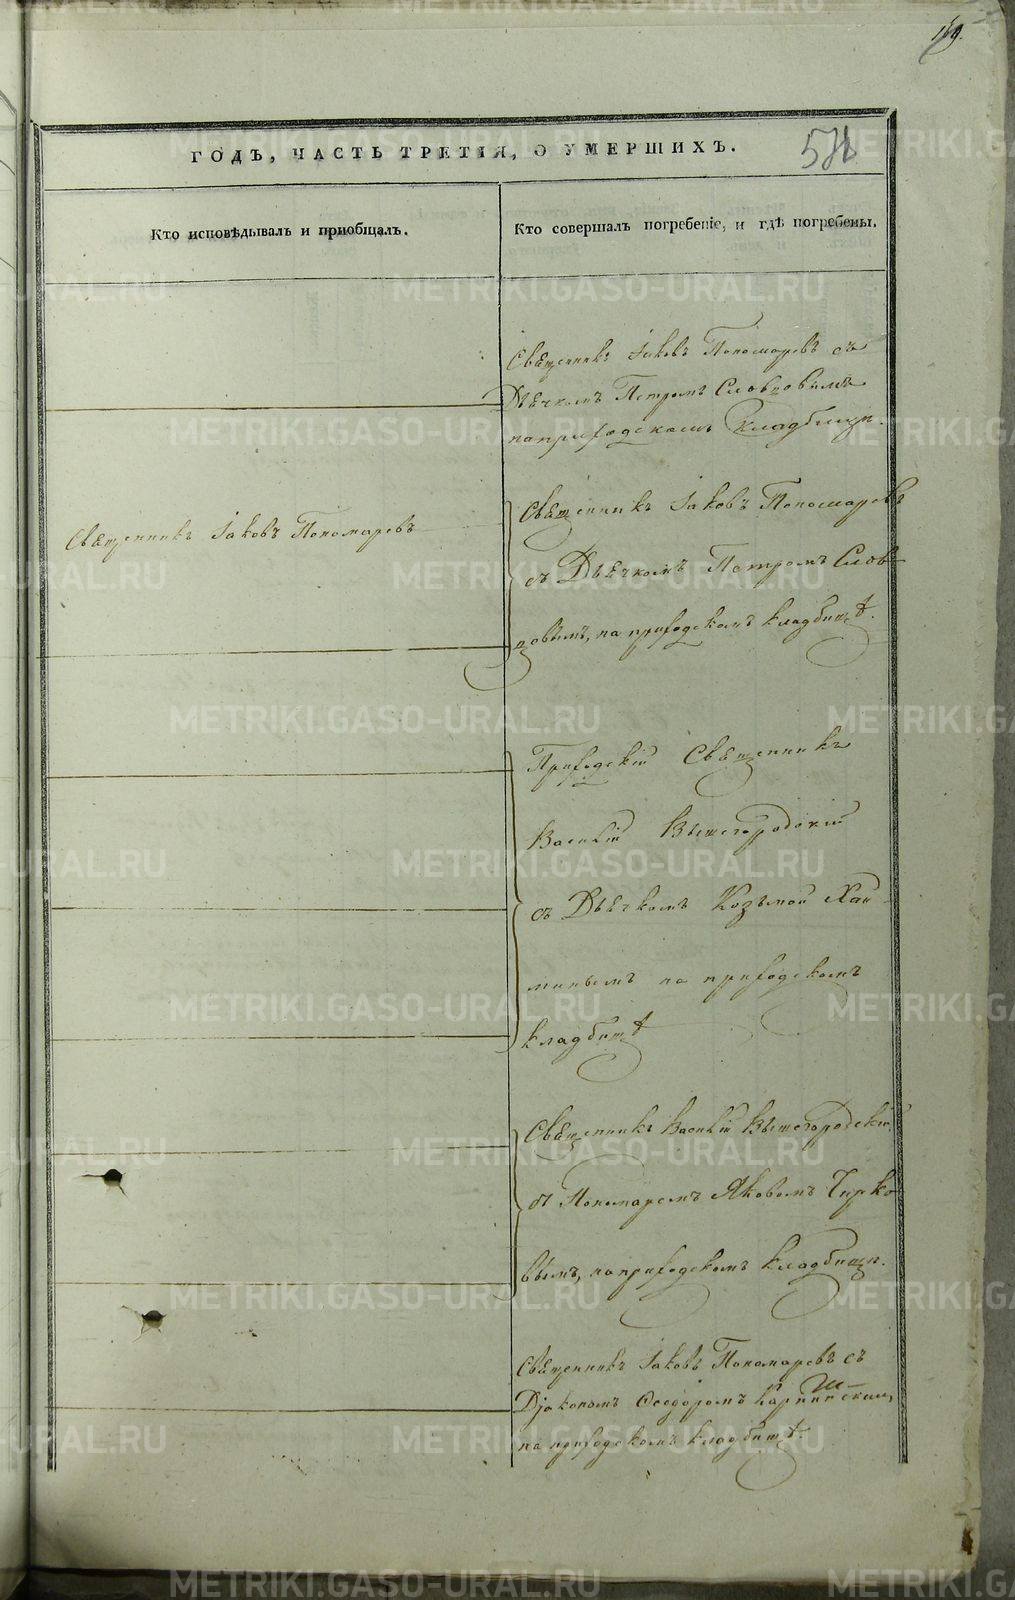 169.
ГОДЪ, ЧАСТЬ ТРЕТІЯ, О УМЕРШИХЪ.
Кто исповѣдывалъ и пріобщалъ.
Кто совершалъ погребеніе, и гдѣ погребены.
Священникъ Іаковъ Пономаревъ съ
Дьячкомъ Петромъ Словцовымъ
на приходскомъ кладбищѣ.
Священникъ Іаковъ Пономаревъ
Священникъ Іаковъ Пономаревъ
съ Дьячкомъ Петромъ Слов-
цовымъ, на приходскомъ кладбищѣ.
Приходскій Священникъ
Василій Вышегородскій
съ Дьячкомъ Козьмой Хан-
минымъ на приходскомъ
кладбищѣ
Священникъ Василій Вышегородскій
съ Пономаремъ Яковомъ Чирко-
вымъ, на приходскомъ кладбищѣ.
Священникъ Іаковъ Пономаревъ съ
Діакономъ Ѳеодоромъ Карпинскимъ,
на приходскомъ кладбищѣ.
METRIKI.GASO-URAL.RU